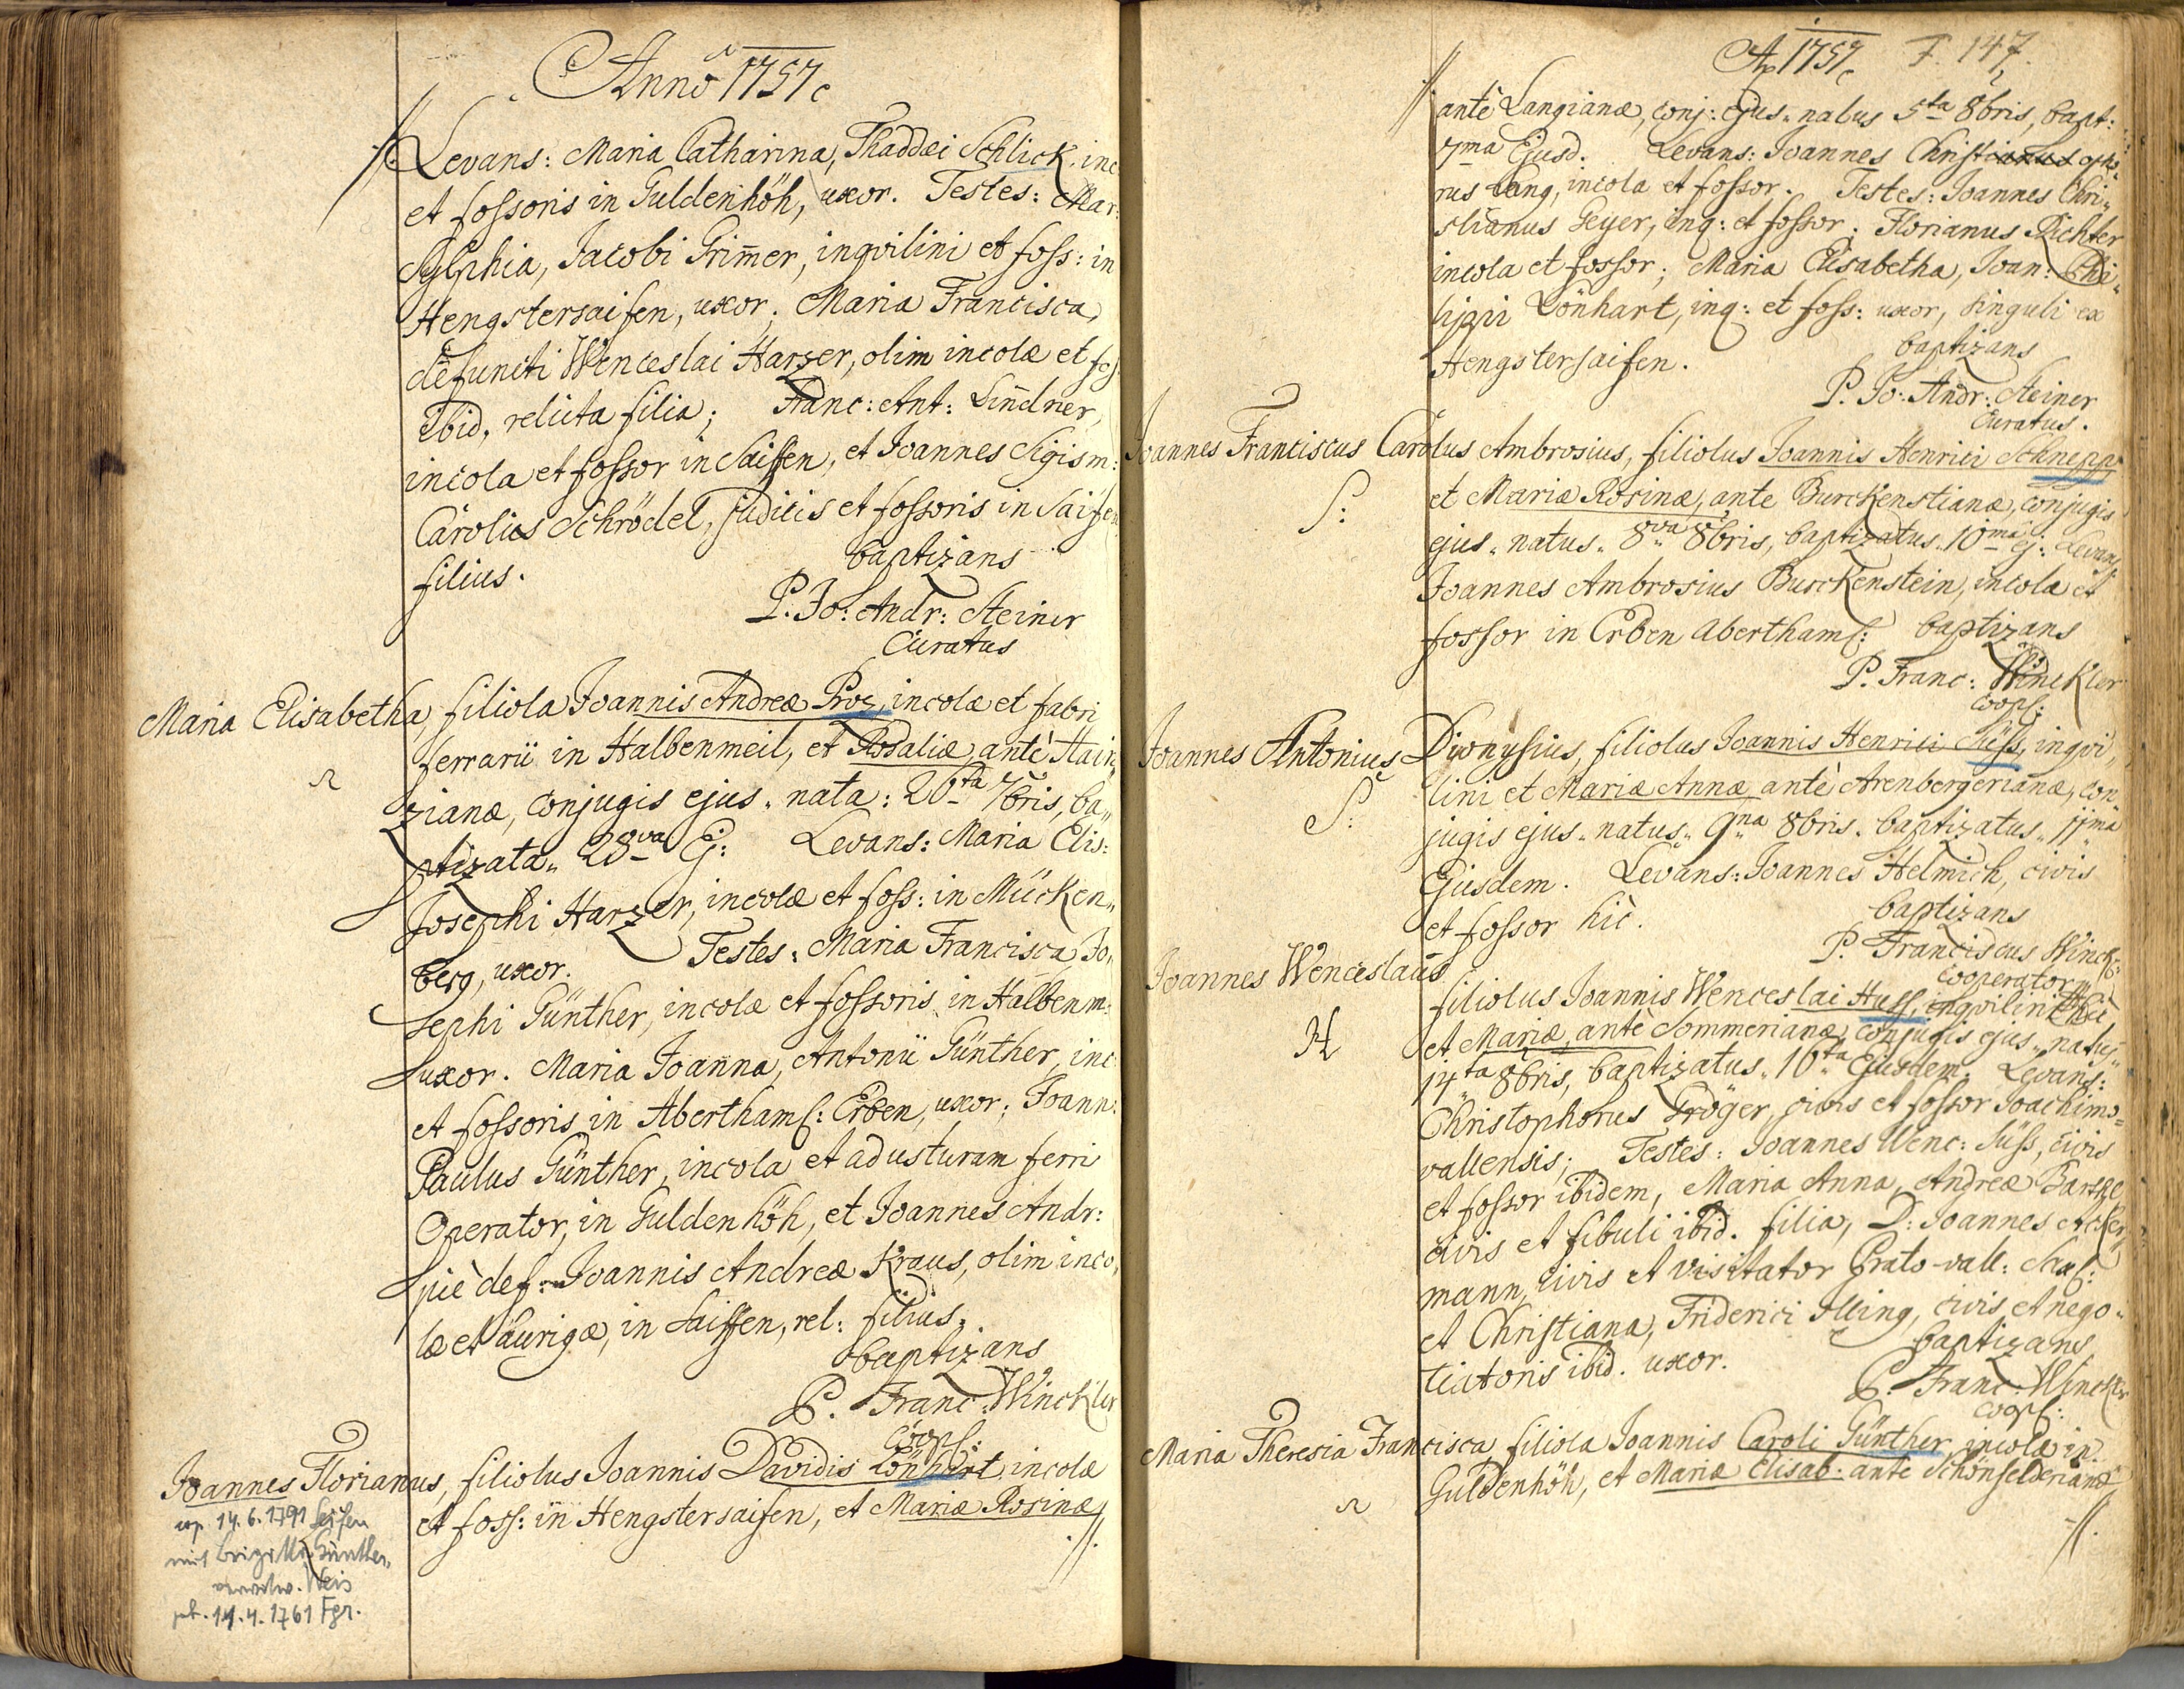 Anno 1757
Levans: Maria Catharina, Thaddæi Schlick, inc
et fossoris in Guldenhöh, uxor. Testes: Mar:
Sylphia, Jacobi Grim̄er, inqvilini et foss: in
Hengstersaifen, uxor; Maria Francisca,
defuncti Wenceslai Harzer, olim incolæ et fos
ibid, relicta filia; Franc: Ant: Lindner,
incola et fossor in Saiffen, et Joannes Sigism:
Carolus Schrödel, judicis et fossoris in Saife
filius.
baptizans
P. Jo: Andr: Steiner
Curatus
Maria Elisabetha, filiola Joannis Andreæ Proz, incolæ et fabri
ferrarii in Halbenmeil, et Rosaliæ antè Hain,,
zianæ, conjugis ejus. nata: 26ta 7bris, ba,,
ptizata,, 28va Ej: Levans: Maria Elis:
Josephi Harzer, incolæ et foss: in Mücken,,
berg, uxor. Testes: Maria Francisca Jo,,
sephi Günther, incolæ et fossoris in Halbenm:
uxor. Maria Joanna, Antonii Günther, inc
et fossoris in Aberthams: Erben, uxor; Joann:
Paulus Günther, incola et adusturam ferri
Operator, in Guldenhöh, et Joannes Andr:
piè def: Joannis Andreæ Kraus, olim inco,,
læ et aurigæ, in Saiffen, rel: filius.
baptizans
P. Franc: Winckler
Coops:
Joannes Florianus, filiolus Joannis Davidis Lönhart incolæ
et foss: in Hengstersaifen, et Mariæ Rosinæ
cop. 14.6.1791 Seifen
mit Brigitta Günther,
verwitw. Weis
geb. 14.4.1761 Fgr.
Ao 1757 F. 147.
antè Langianæ, conj: ejus. natus 5ta 8bris, bapt:
7ma Ejusd. Levans: Joannes Christianus opho,,
rus Lang, incola et fossor. Testes: Joannes Chri,,
stianus Geyer, inq: et fossor; Florianus Richter
incola et fossor; Maria Elisabetha, Joan: Phi,,
lippi Lönhart, inq: et foss: uxor, singuli ex
Hengstersaifen.
baptizans
P. Jo: Andr: Steiner
Curatus.
Joannes Franciscus Carolus Ambrosius, filiolus Joannis Henrici Schnepp
S:
et Mariæ Rosinæ, ante Burckenstianæ, conjugis
ejus. natus. 8va 8bris, baptizatus. 10ma ej: Levans
Joannes Ambrosius Burckenstein, incola et
fossor in Erben Aberthams: baptizans
P. Franc: Winckler
Coops:
Joannes Antonius Dionysius, filiolus Joannis Henrici Süss, inqvi,,
S:
lini et Mariæ Annæ antè Arenbergerianæ, con
jugis ejus. natus. 9na 8bris. baptizatus. 11ma
Ejusdem. Levans: Joannes Helmich, civis
et fossor hìc.
baptizans
P. Franciscus Winck:
Cooperator
Joannes Wenceslaus
filiolus Joannis Wenceslai Huss, inqvilini hìc
H
et Mariæ, antè Sommerianæ conjugis ejus. natus
14ta 8bris, baptizatus. 16ta Ejusdem. Levans:
Christophorus Gröger, civis et fossor Joachimo=
vallensis; Testes: Joannes Wenc: Süss, civis
et fossor ibidem, Maria Anna, Andreæ Bartzl
civis et fibuli ibid. filia, D: Joannes Acker,,
mann, civis et visitator Prato-vall: Sax:
et Christiana, Friderici Illing, civis et nego,,
tiatoris ibid. uxor.
baptizans
P. Franc: Winckler
Coops:
Maria Theresia Francisca, filiola Joannis Caroli Günther incolæ in
Guldenhöh, et Mariæ Elisab: ante Schönfelderianæ